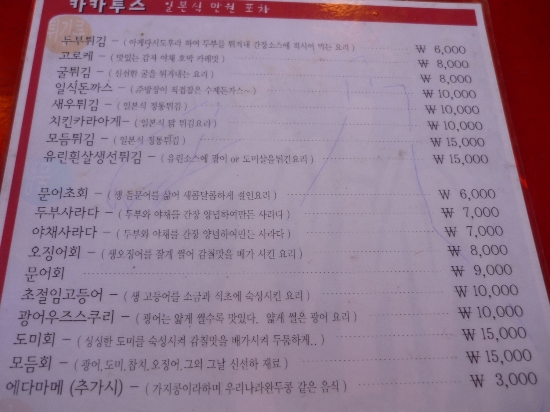 카카투스 일본식 만원 포차
튀기류
두부튀김 - ( 아게다시도후라 하며 두부를 튀겨내 간장소스에 적시어 먹는 요리 ) ₩ 6,000
고로케 - ( 맛있는 감자 야채 호박 카레맛 ) ₩ 8,000
굴튀김 - ( 신선한 굴을 튀겨내는 요리 ) ₩ 8,000
일식돈까스 - ( 주방장이 직접잡은 수제돈가스~ ) ₩ 10,000
새우튀김 - ( 일본식 정통튀김 ) ₩ 10,000
치킨카라아게 - ( 일본식 닭 튀김요리 ) ₩ 10,000
모듬튀김 - ( 일본식 정통튀김 ) ₩ 15,000
유린흰살생선튀김 - ( 유린소스에 광어 or 도미살을튀긴요리 ) ₩ 15,000
문어초회 - ( 생 돌문어를 삶아 새콤달콤하게 절인요리 ) ₩ 6,000
두부사라다 - ( 두부와 야채를 간장 양념하여만든 사라다 ) ₩ 7,000
야채사라다 - ( 두부와 야채를 간장 양념하여만든 사라다 ) ₩ 7,000
오징어회 - ( 생오징어를 잘게 썰어 감칠맛을 배가 시킨 요리 ) ₩ 8,000
문어회 ₩ 9,000
초절임고등어 - ( 생 고등어를 소금과 식초에 숙성시킨 요리 ) ₩ 10,000
광어우즈스쿠리 - ( 광어는 얇게 썰수록 맛있다. 얇게 썰은 광어 요리 ) ₩ 10,000
도미회 - ( 싱싱한 도미를 숙성시켜 감칠맛을 배가시켜 두툼하게.. ) ₩ 15,000
모듬회 - ( 광어,도미,참치,오징어,그외 그날 신선하 재료 ) ₩ 15,000
에다마메 (추가시) - ( 가지콩이라하며 우리나라완두콩 같은 음식 ) ₩ 3,000